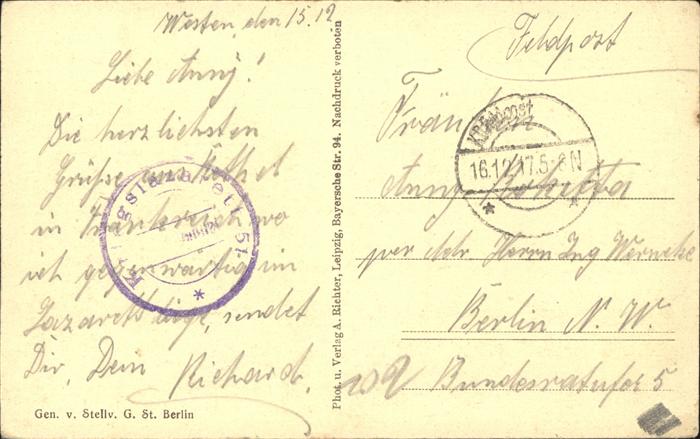 Westen, den 15.12
Liebe Anny!
Die herzlichsten
Grüsse aus Rethel
in Frankreich wo
ich gegenwärtig im
Lazarett liege, sendet
Dir, Dein Richard.
Gen. v. Stellv. G. St. Berlin
Phot. u. Verlag A. Richter, Leipzig, Bayersche Str. 94. Nachdruck verboten
Kriegslazarett
Feldpost
Fräulein
K.D.Feldpost
16.12.17.5-6N
Anny
per Adr. Herrn Ing Wernecke
Berlin N. W.
Bundesratufer 5